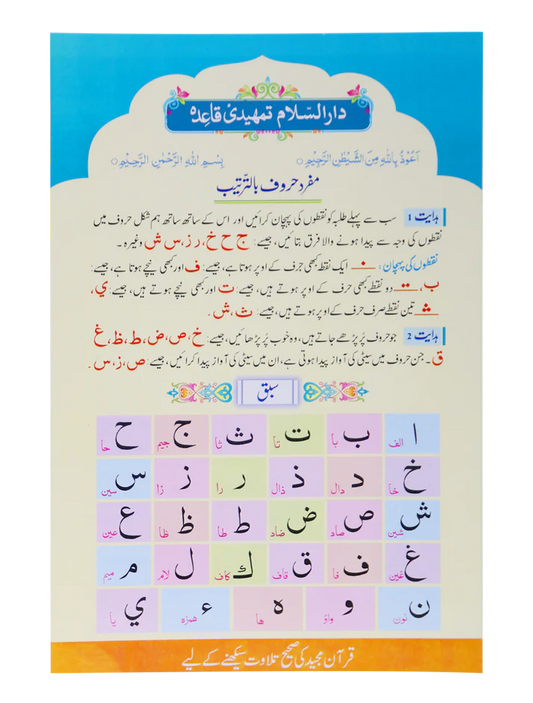 دار السّلام تمهیدی قاعدہ
اَعُوْذُ بِاللّٰهِ مِنَ الشَّيْطٰنِ الرَّجِيْمِ ○ بِسْمِ اللّٰهِ الرَّحْمٰنِ الرَّحِيْمِ ○
مفرد حروف بالتّرتیب
ہدایت 1 سب سے پہلے طلبہ کو نقطوں کی پہچان کرائیں اور اس کے ساتھ ساتھ ہم شکل حروف میں
نقطوں کی وجہ سے پیدا ہونے والا فرق بتائیں، جیسے: ج ح خ، ر ز، س ش وغیرہ۔
نقطوں کی پہچان: ایک نقطہ کبھی حرف کے اوپر ہوتا ہے، جیسے: ف اور کبھی نیچے ہوتا ہے، جیسے:
ب، دو نقطے کبھی حرف کے اوپر ہوتے ہیں، جیسے: ت اور کبھی نیچے ہوتے ہیں، جیسے: ي،
تین نقطے صرف حرف کے اوپر ہوتے ہیں، جیسے: ث، ش۔
ہدایت 2 جو حروف پُر پڑھے جاتے ہیں، وہ خوب پُر پڑھائیں، جیسے: خ، ص، ض، ط، ظ، غ
ق۔ جن حروف میں سیٹی کی آواز پیدا ہوتی ہے، ان میں سیٹی کی آواز پیدا کرائیں، جیسے: ص، ز، س۔
سبق
ا الف ب با ت تا ث ثا ج جیم ح حا
خ خا د دال ذ ذال ر را ز زا س سین
ش شین ص صاد ض ضاد ط طا ظ ظا ع عین
غ غین ف فا ق قاف ك کاف ل لام م میم
ن نون و واؤ ه ها ء همزه ي یا
قرآن مجید کی صحیح تلاوت سیکھنے کے لیے